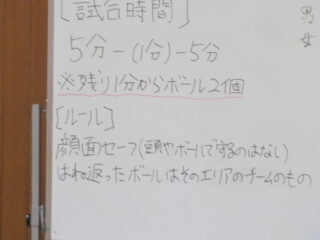 [試合時間]
5分-(1分)-5分
※残り1分からボール2個
[ルール]
顔面セーフ(頭やボールで守るのはなし)
はね返ったボールはそのエリアのチームのもの
男
女